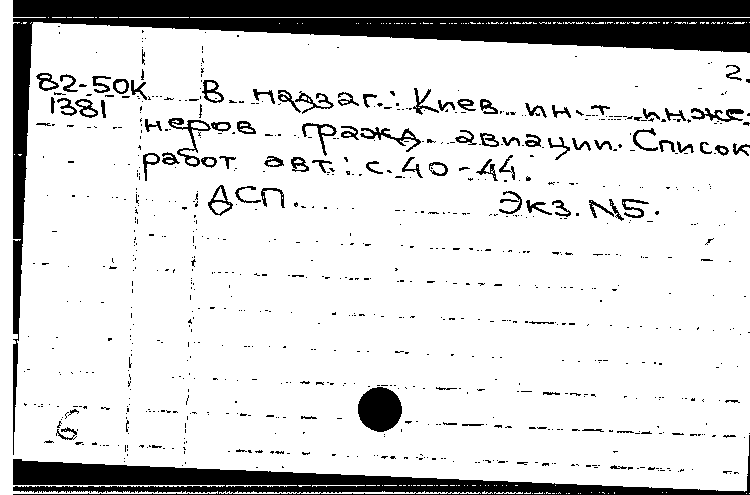 2.
82-50К В надзаг.: Киев. ин-т инже-
1381 неров гражд. авиации. Список
работ авт.: с. 40-44.
ДСП. Экз. N5.
6